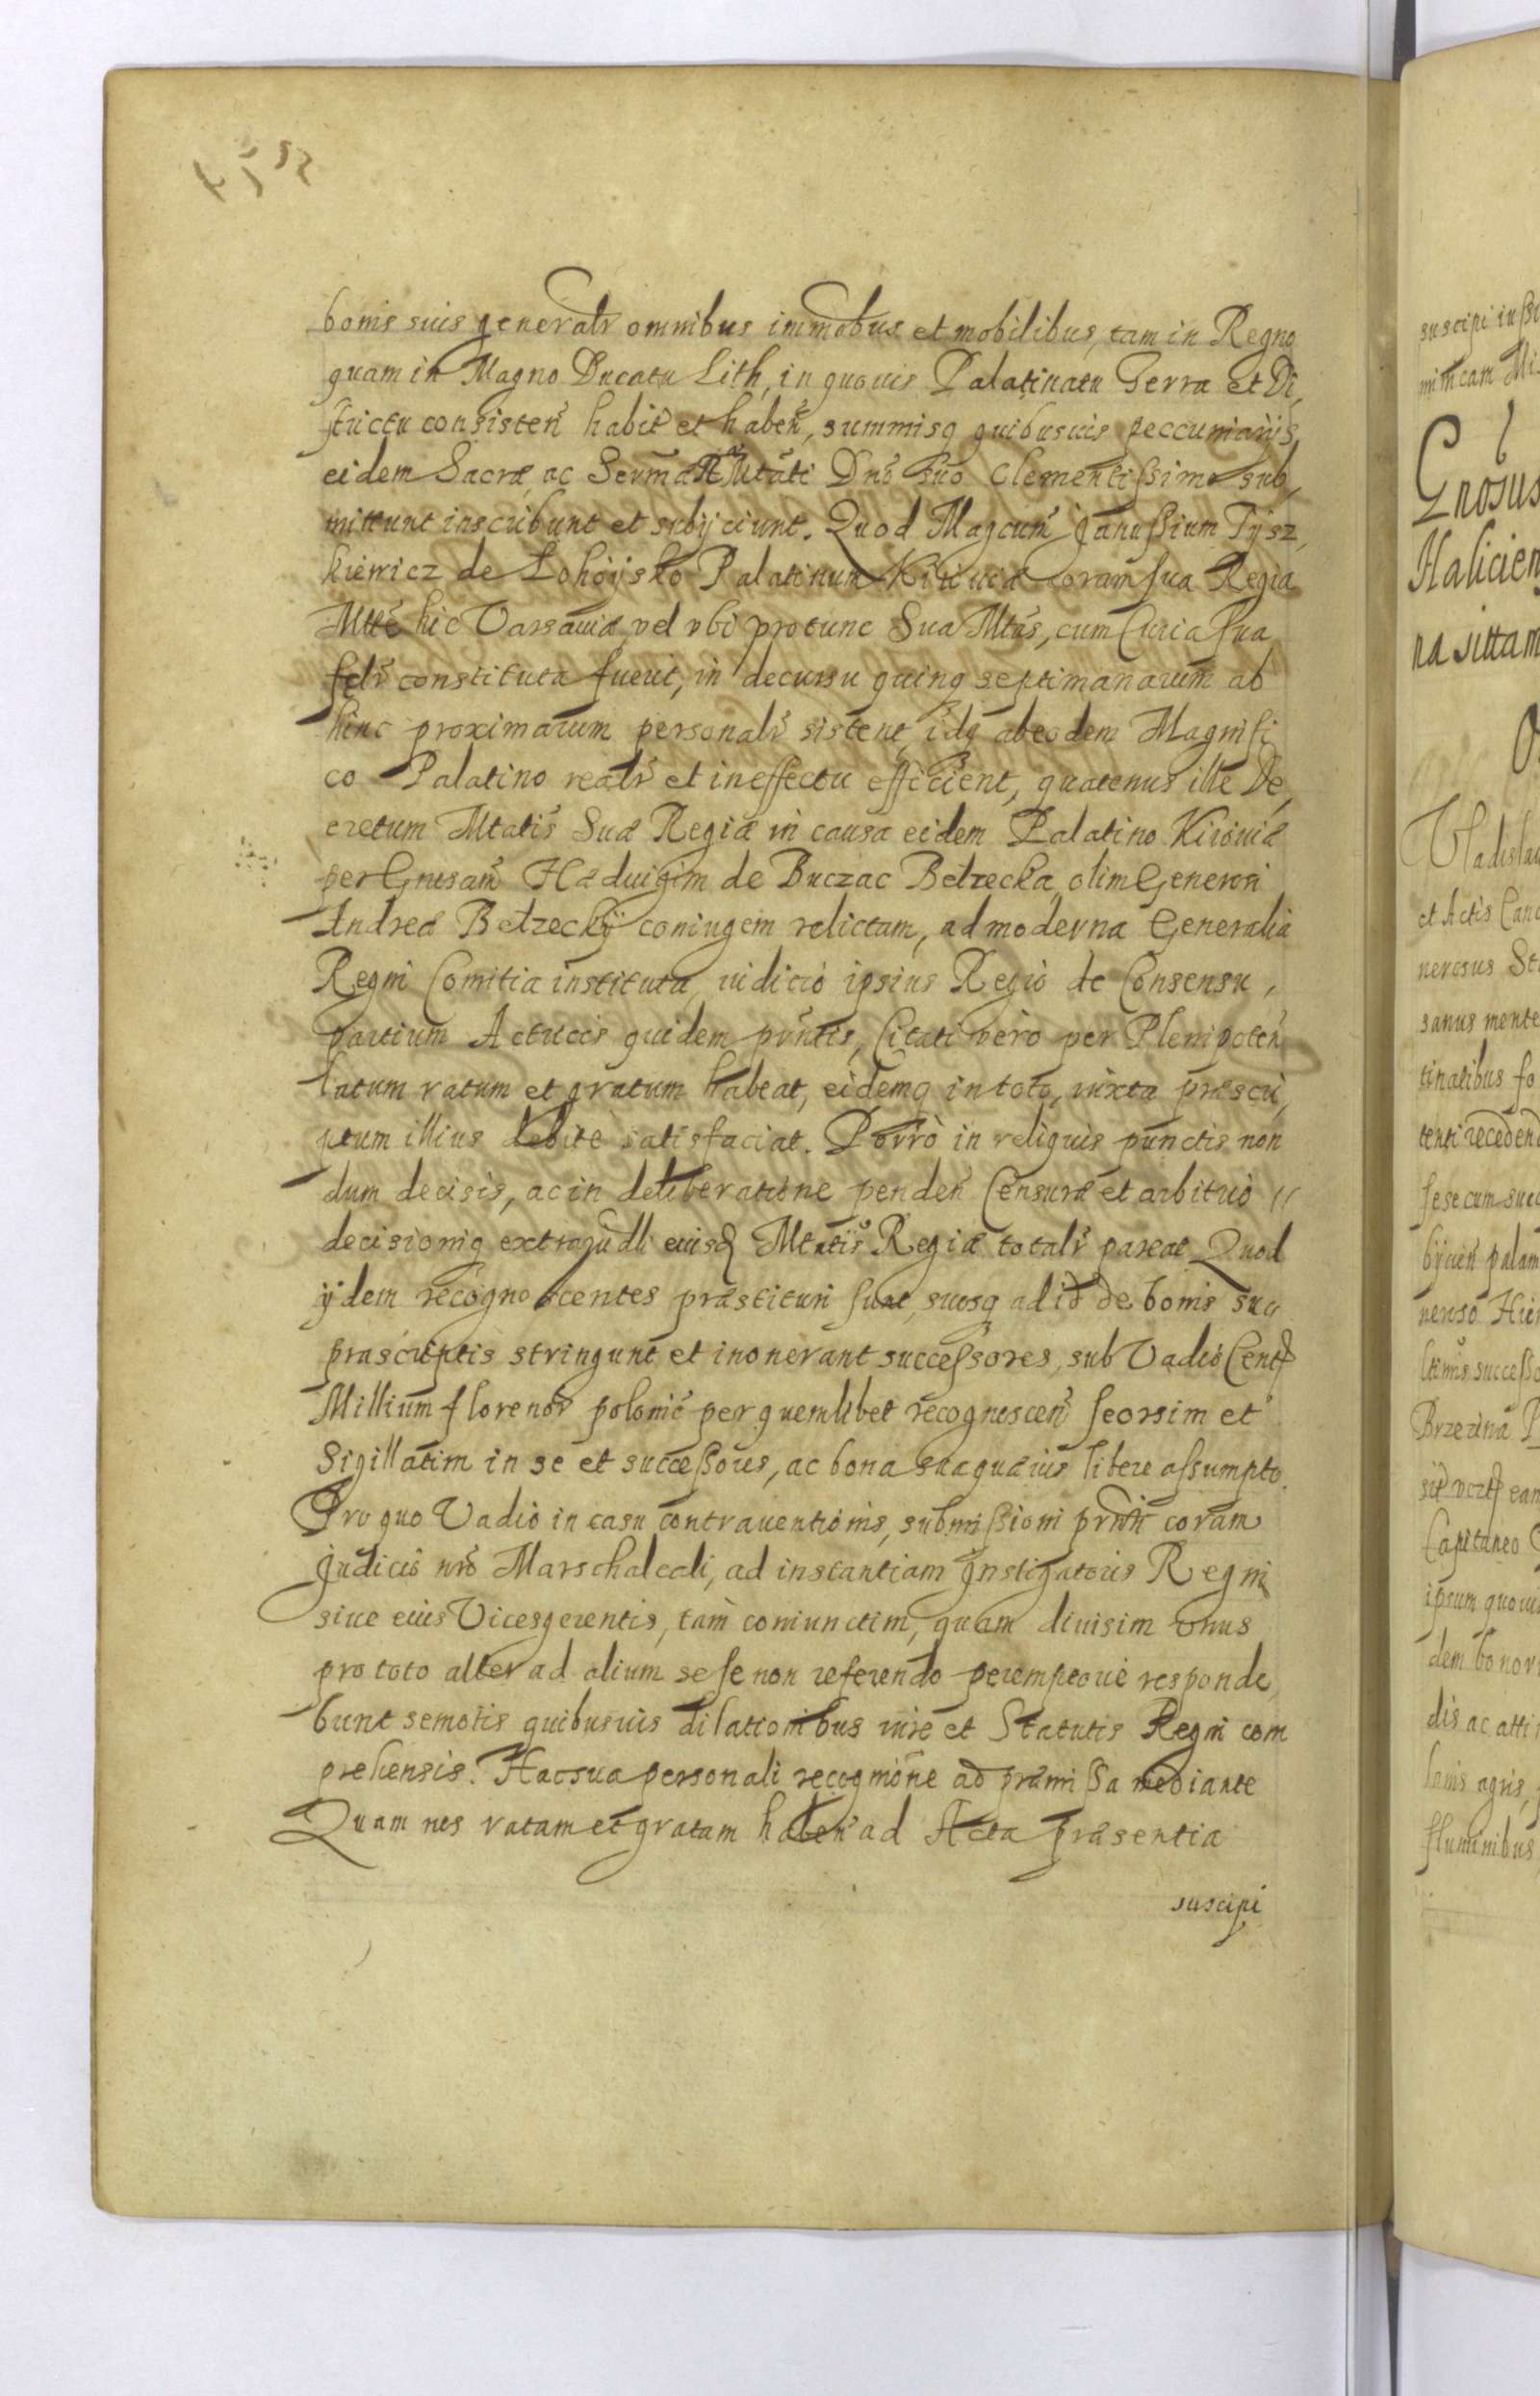 bonis suis generalr omnibus immobus et mobilibus, tam in Regno
quam in Magno Ducatu Lith, in quouis Palatinatu Terra et Di,
strictu consisten habit et haben, summisq quibusuis peccuniarijs,
eidem Sacræ ac Sermæ R Mtati Dno suo Clementissimo sub,
mittunt inscribunt et subijciunt. Quod Magcum Janussium Tysz,
kiewicz de Lohoysko Palatinum Kiiouiæ coram sua Regia
Mtte hic Varsauiæ, vel vbi protunc Sua Mtas, cum Curia sua
felr constituta fuerit, in decursu quinq septimanarum ab
hinc proximarum personalr sistent, idq ab eodem Magnifi
co Palatino realr et in effectu efficient, quatenus ille De,
cretum Mtatis Suæ Regiæ in causa eidem Palatino Kiiouiæ
per Gnrosam Hæduigim de Buczac Betzecka, olim Generosi
Andreæ Betzeckij coniugem relictam, ad moderna Generalia
Regni Comitia instituta, iudicio ipsius Regio de Consensu,
partium Actricis quidem pntis, Citati vero per Plenipoten
latum ratum et gratum habeat, eidemq in toto, iuxta præscri,
ptum illius debite satisfaciat. Porrò in reliquis punctis non
dum decisis, ac in deliberatione penden Censuræ et arbitrio
decisioniq extraiudli eiusd Mtatis Regiæ totalr pareat Quod
ijdem recognoscentes præstituri sunt, suosq ad id de bonis suis
præscriptis stringunt et inonerant successores, sub Vadio Cent
Millium florenor polonic per quemlibet recognoscen seorsim et
Sigillatim in se et successores, ac bona sua quæuis libere assumpto.
Pro quo Vadio in casu contrauentionis, submissioni pnti coram
Judicio nro Marschalcali, ad instantiam Instigatoris Regni
siue eius Vicesgerentis, tam coniunctim, quam diuisim vnus
pro toto alter ad alium sese non referendo peremptorie responde,
bunt semotis quibusuis dilationibus iure et Statutis Regni com
prehensis. Hac sua personali recognitione ad præmissa mediante
Quam nos ratam et gratam haben ad Acta præsentia
suscipi